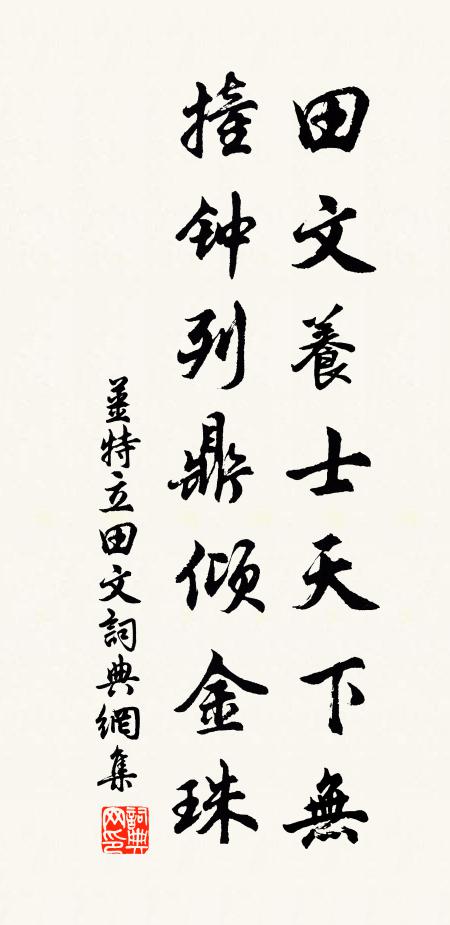 田文養士天下無
撞钟列鼎倾金珠
薑特立田文詞典網集
詞典网印